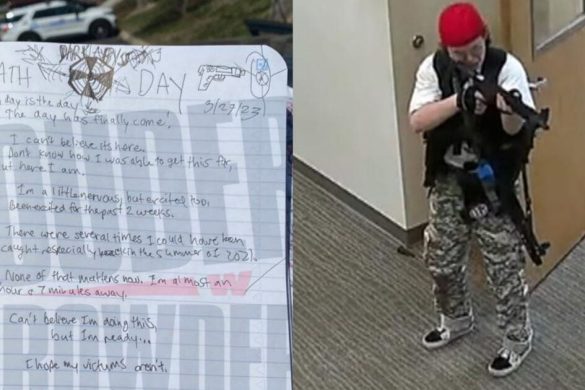 DEATH DAY
3/27/23
day is the day
The day has finally come!
I can't believe its here.
Dont know how I was able to get this far,
but here I am.
I'm a little nervous, but excited too.
Been excited for the past 2 weeks.
There were several times I could have been
caught, especially back in the summer of 2021.
None of that matters now. I'm almost an
hour & 7 minutes away.
Can't believe I'm doing this,
but I'm ready...
I hope my victims aren't.
CROWDER